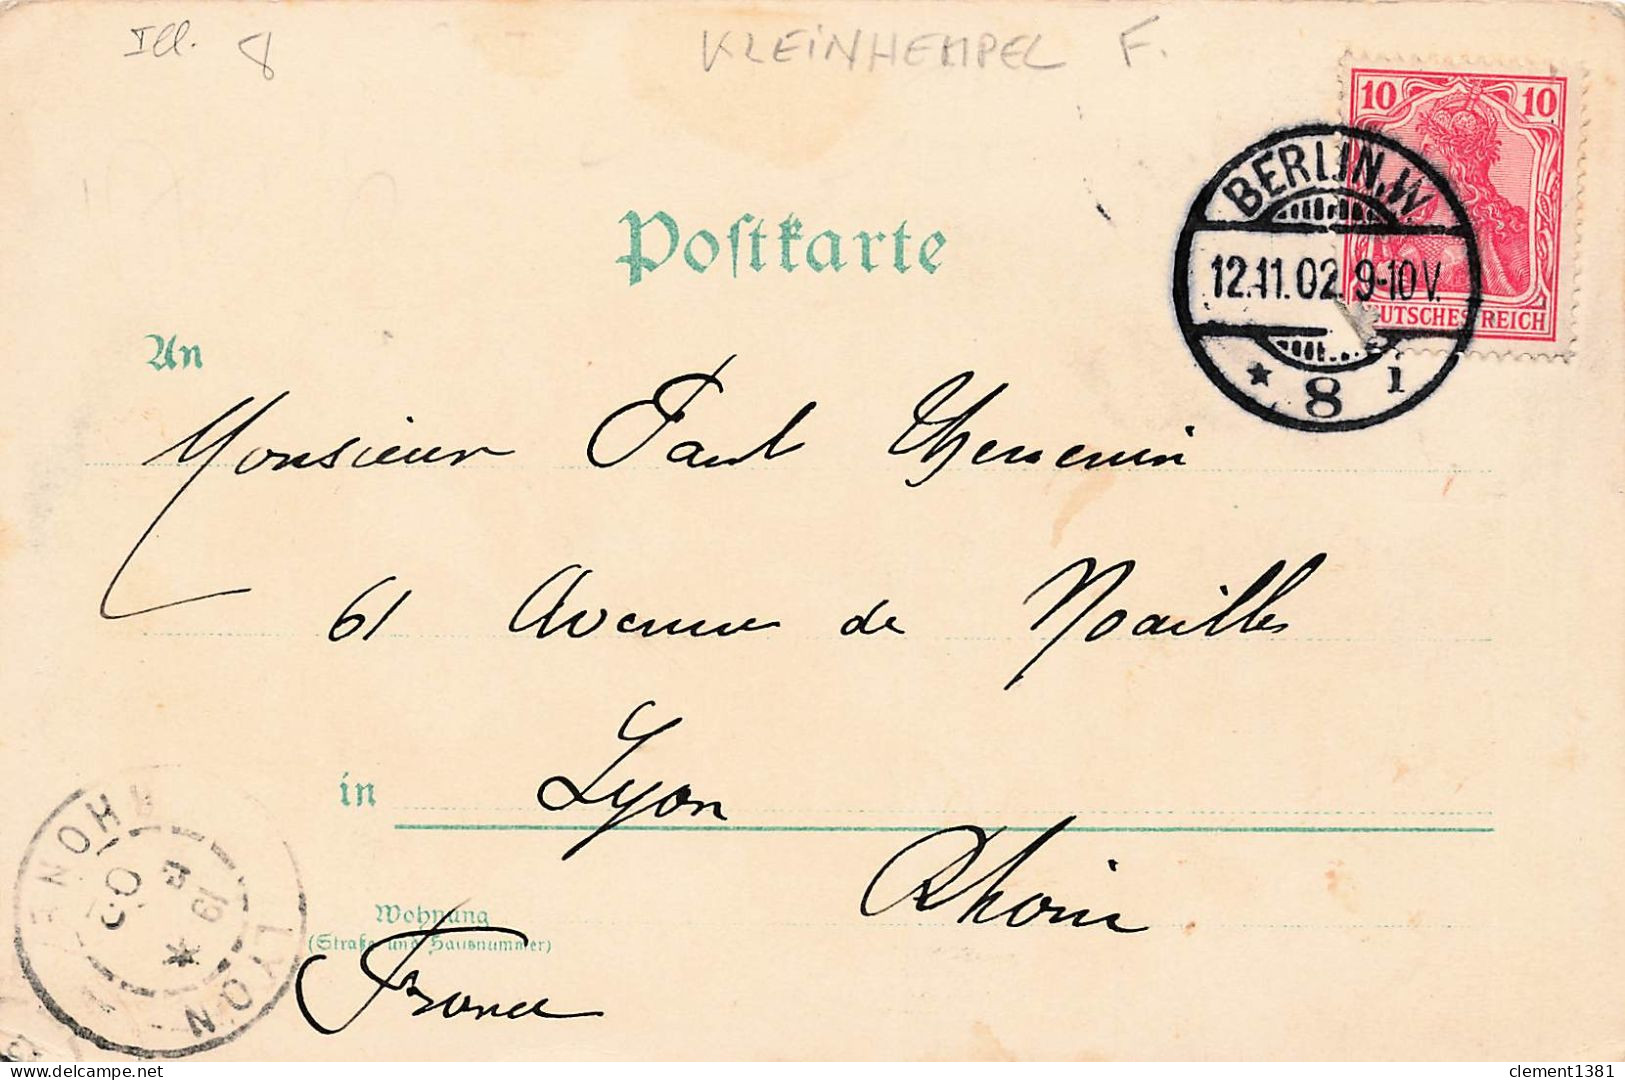 Ill. 8
KLEINHEMPEL F.
10 10
DEUTSCHES REICH
BERLIN, W.
12.11.02. 9-10V.
* 8 i
Postkarte
An
Monsieur Paul
61 Avenue de Noailles
in Lyon
Rhône
Wohnung
(Straße und Hausnummer)
France
LYON
RHONE
02
*
clement1381